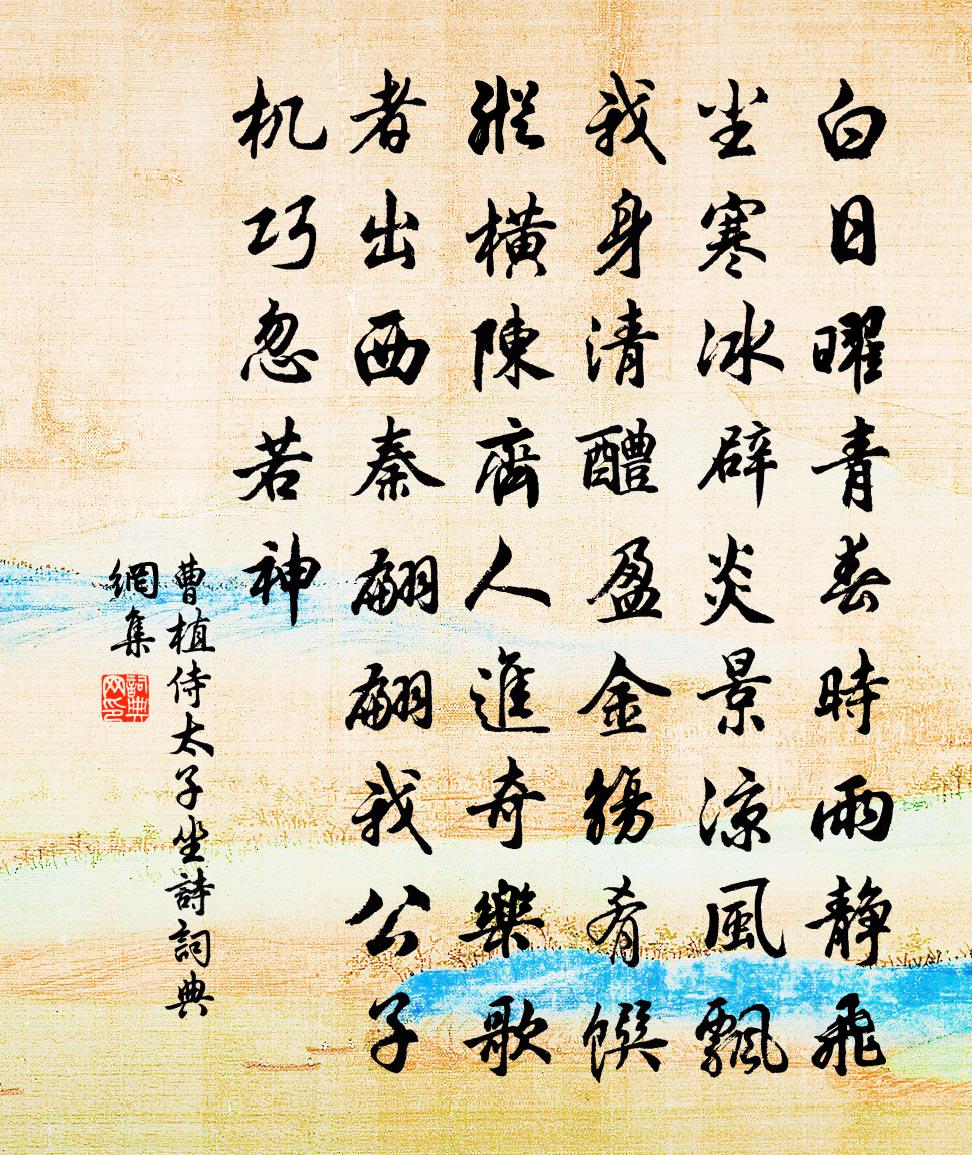 白日曜青春時雨静飛
尘寒冰辟炎景涼風飄
我身清醴盈金觴肴饌
縱橫陳齊人進奇樂歌
者出西秦翩翩我公子
机巧忽若神
曹植侍太子坐詩詞典
網集
詞典
网印